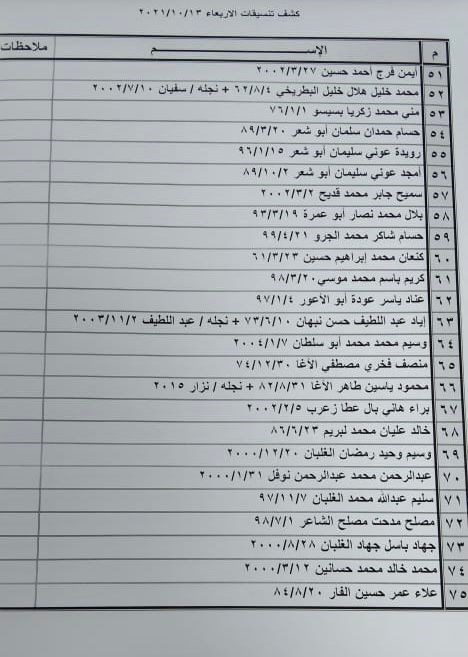 كشف تنسيقات الاربعاء ٢٠٢١/١٠/١٣
م الإســـــم ملاحظات
٥١ أيمن فرج أحمد حسين ٢٠٠٢/٣/٢٧
٥٢ محمد خليل هلال خليل البطريخي ٦٢/٨/٤ + نجله / سفيان ٢٠٠٢/٧/١٠
٥٣ منى محمد زكريا بسيسو ٧٦/١/١
٥٤ حسام حمدان سلمان أبو شعر ٨٩/٣/٢٠
٥٥ رويدة عوني سليمان أبو شعر ٩٦/١/١٥
٥٦ أمجد عوني سليمان أبو شعر ٨٩/١٠/٢
٥٧ سميح جابر محمد قديح ٢٠٠٢/٣/٢
٥٨ بلال محمد نصار أبو عمرة ٩٣/٣/١٩
٥٩ حسام شاكر محمد الجرو ٩٩/٤/٢١
٦٠ كنعان محمد إبراهيم حسين ٦١/٣/٢٣
٦١ كريم باسم محمد موسي ٩٨/٣/٢٠
٦٢ عناد ياسر عودة أبو الأعور ٩٧/١/٤
٦٣ إياد عبد اللطيف حسن نبهان ٧٣/٦/١٠ + نجله / عبد اللطيف ٢٠٠٣/١١/٢
٦٤ وسيم محمد محمد أبو سلطان ٢٠٠٤/١/٧
٦٥ منصف فخري مصطفي الأغا ٧٤/١٢/٣٠
٦٦ محمود ياسين طاهر الأغا ٨٢/٨/٣١ + نجله / نزار ٢٠١٥
٦٧ براء هاني بال عطا زعرب ٢٠٠٢/٢/٥
٦٨ خالد عليان محمد لبريم ٨٦/٦/٢٣
٦٩ وسيم وحيد رمضان الغلبان ٢٠٠٠/١٢/٢٠
٧٠ عبدالرحمن محمد عبدالرحمن نوفل ٢٠٠٠/١/٣١
٧١ سليم عبدالله محمد الغلبان ٩٧/١١/٧
٧٢ مصلح مدحت مصلح الشاعر ٩٨/٧/١
٧٣ جهاد باسل جهاد الغلبان ٢٠٠٠/٨/٢٨
٧٤ محمد خالد محمد حسانين ٢٠٠٠/٣/١٢
٧٥ علاء عمر حسين الفار ٨٤/٨/٢٠